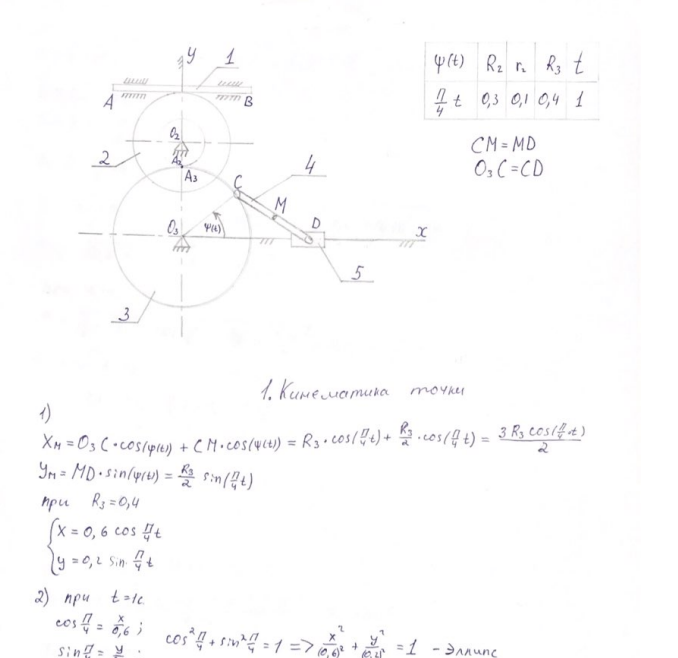 y
1
A
B
ψ(t) R₂ r₂ R₃ t
π/4 t 0,3 0,1 0,4 1
O₂
2
A₂
A₃
CM = MD
O₃C = CD
C
4
M
D
O₃
ψ(t)
x
5
3
1. Кинематика точки
1)
Xм = O₃C·cos(ψ(t)) + CM·cos(ψ(t)) = R₃·cos(π/4 t) + R₃/2·cos(π/4 t) = 3R₃cos(π/4·t)/2
Yм = MD·sin(ψ(t)) = R₃/2 sin(π/4 t)
при R₃ = 0,4
{ x = 0,6 cos π/4 t
y = 0,2 sin π/4 t
2) при t = 1с
cos π/4 = x/0,6 ; cos² π/4 + sin² π/4 = 1 => x²/(0,6)² + y²/(0,2)² = 1 - эллипс
sin π/4 = y